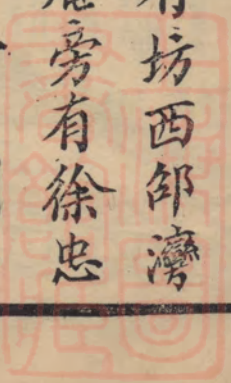 坊西邵灣
旁有徐忠